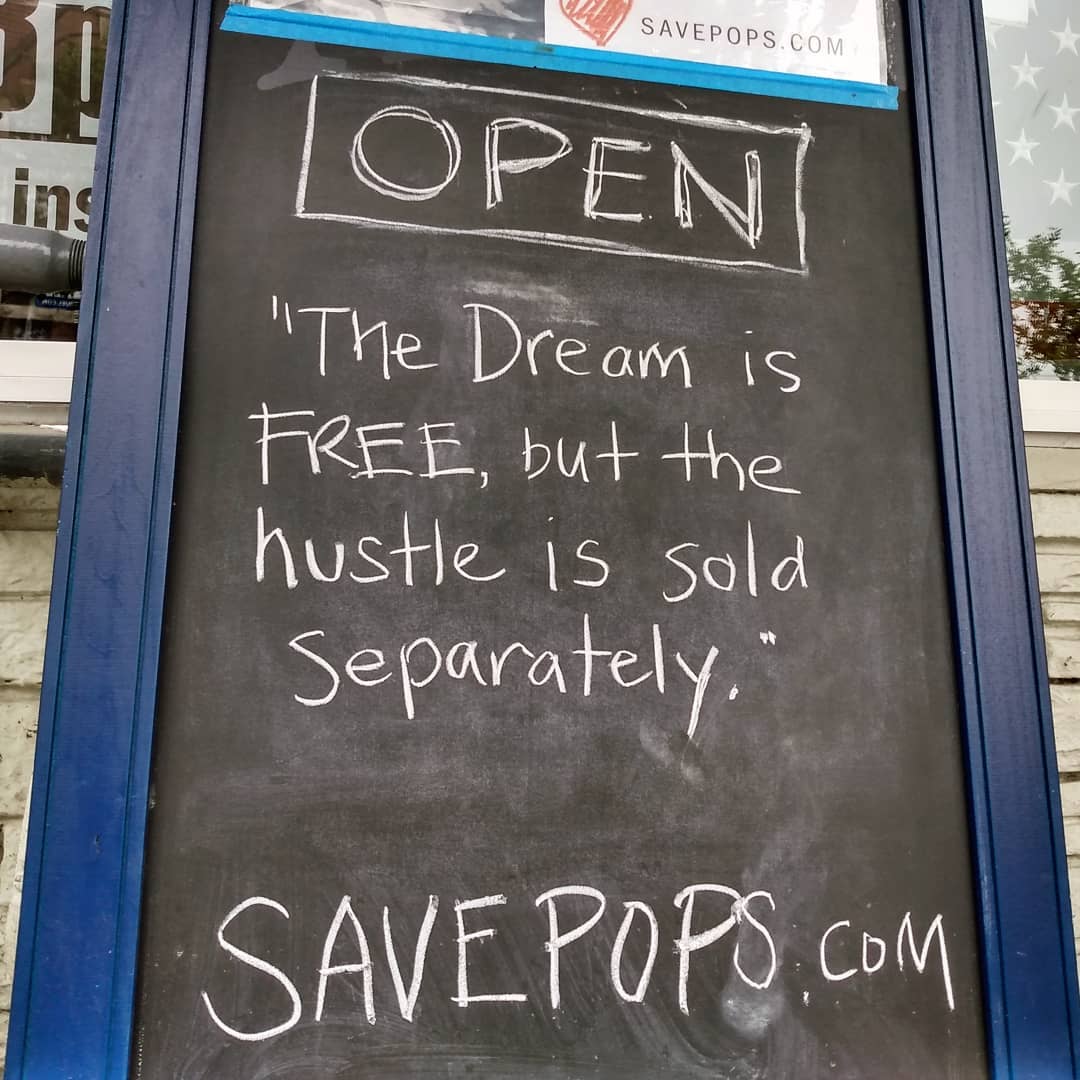 SAVEPOPS.COM
OPEN
"The Dream is
FREE, but the
hustle is sold
separately."
SAVEPOPS.COM